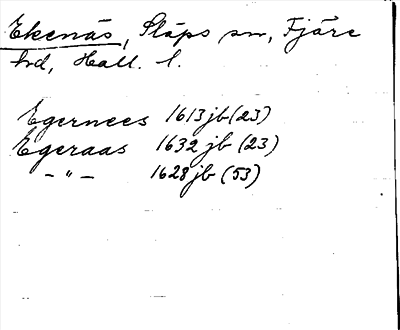 Ekenäs, Släps sn, Fjäre
hd, Hall. l.
Egernees 1613 jb (23)
Egeraas 1632 jb (23)
– " – 1628 jb (53)